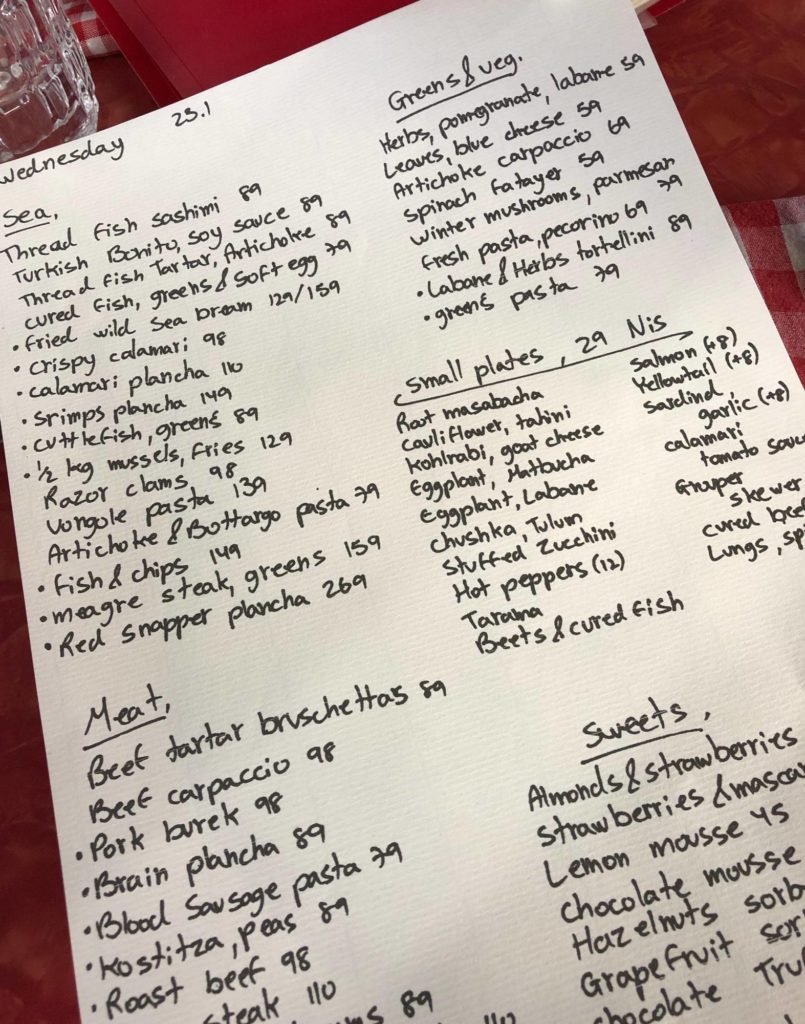 Wednesday 23.1
Sea,
Thread fish sashimi 89
Turkish Bonito, soy sauce 89
Thread fish Tartar, Artichoke 89
cured fish, greens & soft egg 79
• fried wild sea bream 129/159
• crispy calamari 98
• calamari plancha 110
• srimps plancha 149
• cuttlefish, greens 89
• 1/2 kg mussels, fries 129
Razor clams 98
vongole pasta 139
Artichoke & Bottargo pasta 79
• fish & chips 149
• meagre steak, greens 159
• Red snapper plancha 269
Meat,
Beef tartar bruschettas 89
Beef carpaccio 98
• Pork burek 98
• Brain plancha 89
• Blood sausage pasta 79
• Kostitza, peas 89
• Roast beef 98
steak 110
89
110
Greens & veg.
Herbs, pomegranate, labane 59
Leaves, blue cheese 59
Artichoke carpaccio 69
spinach fatayer 59
winter mushrooms, parmesan 79
fresh pasta, pecorino 69
• Labane & Herbs tortellini 89
• greens pasta 79
small plates, 29 Nis
Root masabacha
cauliflower, tahini
kohlrabi, goat cheese
Eggplant, Matbucha
Eggplant, Labane
chushka, Tulum
Stuffed Zucchini
Hot peppers (12)
Tarama
Beets & cured fish
salmon (+8)
Yellowtail (+8)
sardind,
garlic (+8)
calamari
tomato
Grouper
skewer
cured
Lungs,
Sweets,
Almonds & strawberries
strawberries &
Lemon mousse 45
chocolate mousse
Hazelnuts
Grapefruit
chocolate